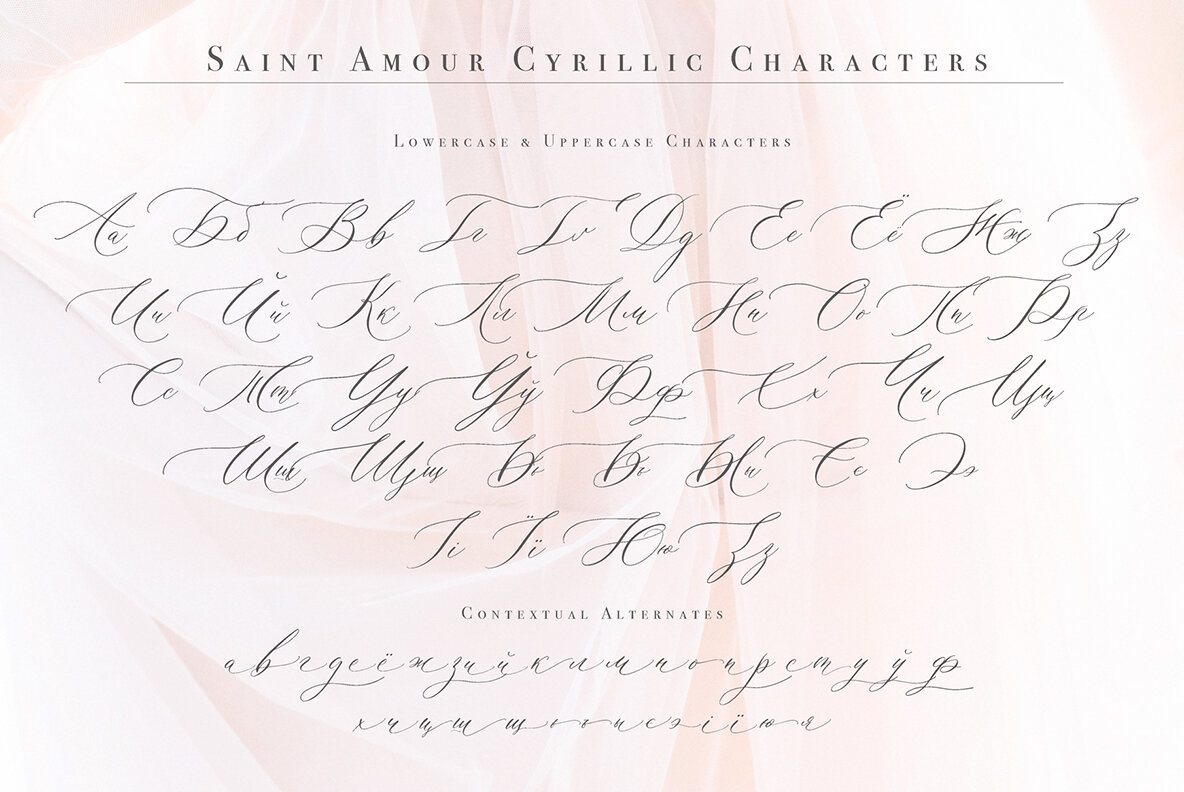 Saint Amour Cyrillic Characters
Lowercase & Uppercase Characters
Аа Бб Вв Гг Гг Дд Ее Ёё Жж Зз
Ии Йй Кк Лл Мм Нн Оо Пп Рр
Сс Тт Уу Ўў Фф Хх Чч Цц
Шш Щщ Ьь Ъъ Ыы Єє Ээ
Іі Її Юю Зз
Contextual Alternates
а в г д е ё ж з и й к л м н о п р с т у ў ф
х ч ц ш щ ь ъ ы є э і ї ю я